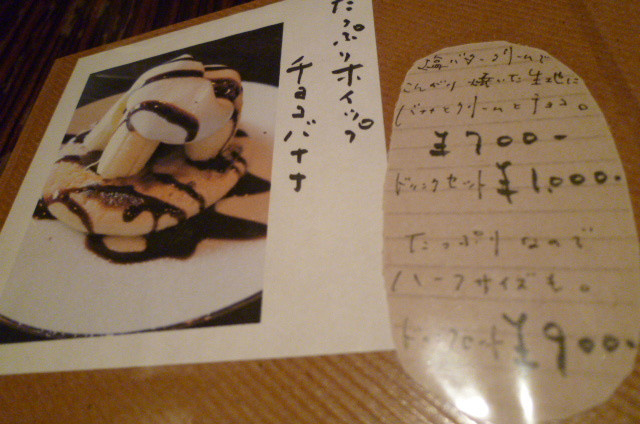 たっぷりホイップ
チョコバナナ
塩バタークリームで
こんがり焼いた生地に
バナナとクリームとチョコ。
¥700-
ドリンクセット ¥1,000-
たっぷりなので
ハーフサイズも。
ドリンクセット ¥900-